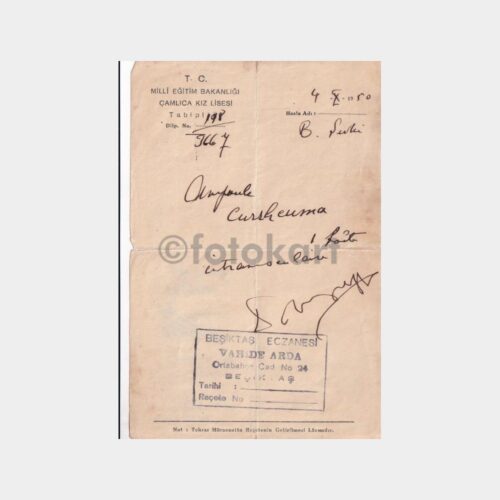 T. C.
MİLLİ EĞİTİM BAKANLIĞI
ÇAMLICA KIZ LİSESİ
Tabipl
Dilp. No. 198
3667
4 X 950
Hasta Adı :
B.
Ampoule
curheuma
1 boîte
intramusculaire
©fotokart
BEŞİKTAŞ ECZANESİ
VAHİDE ARDA
Ortabahçe Cad No 24
BEŞİKTAŞ
Tarihi :
Reçete No
Not : Tekrar Müracaatta Reçetenin Getirilmesi Lâzımdır.